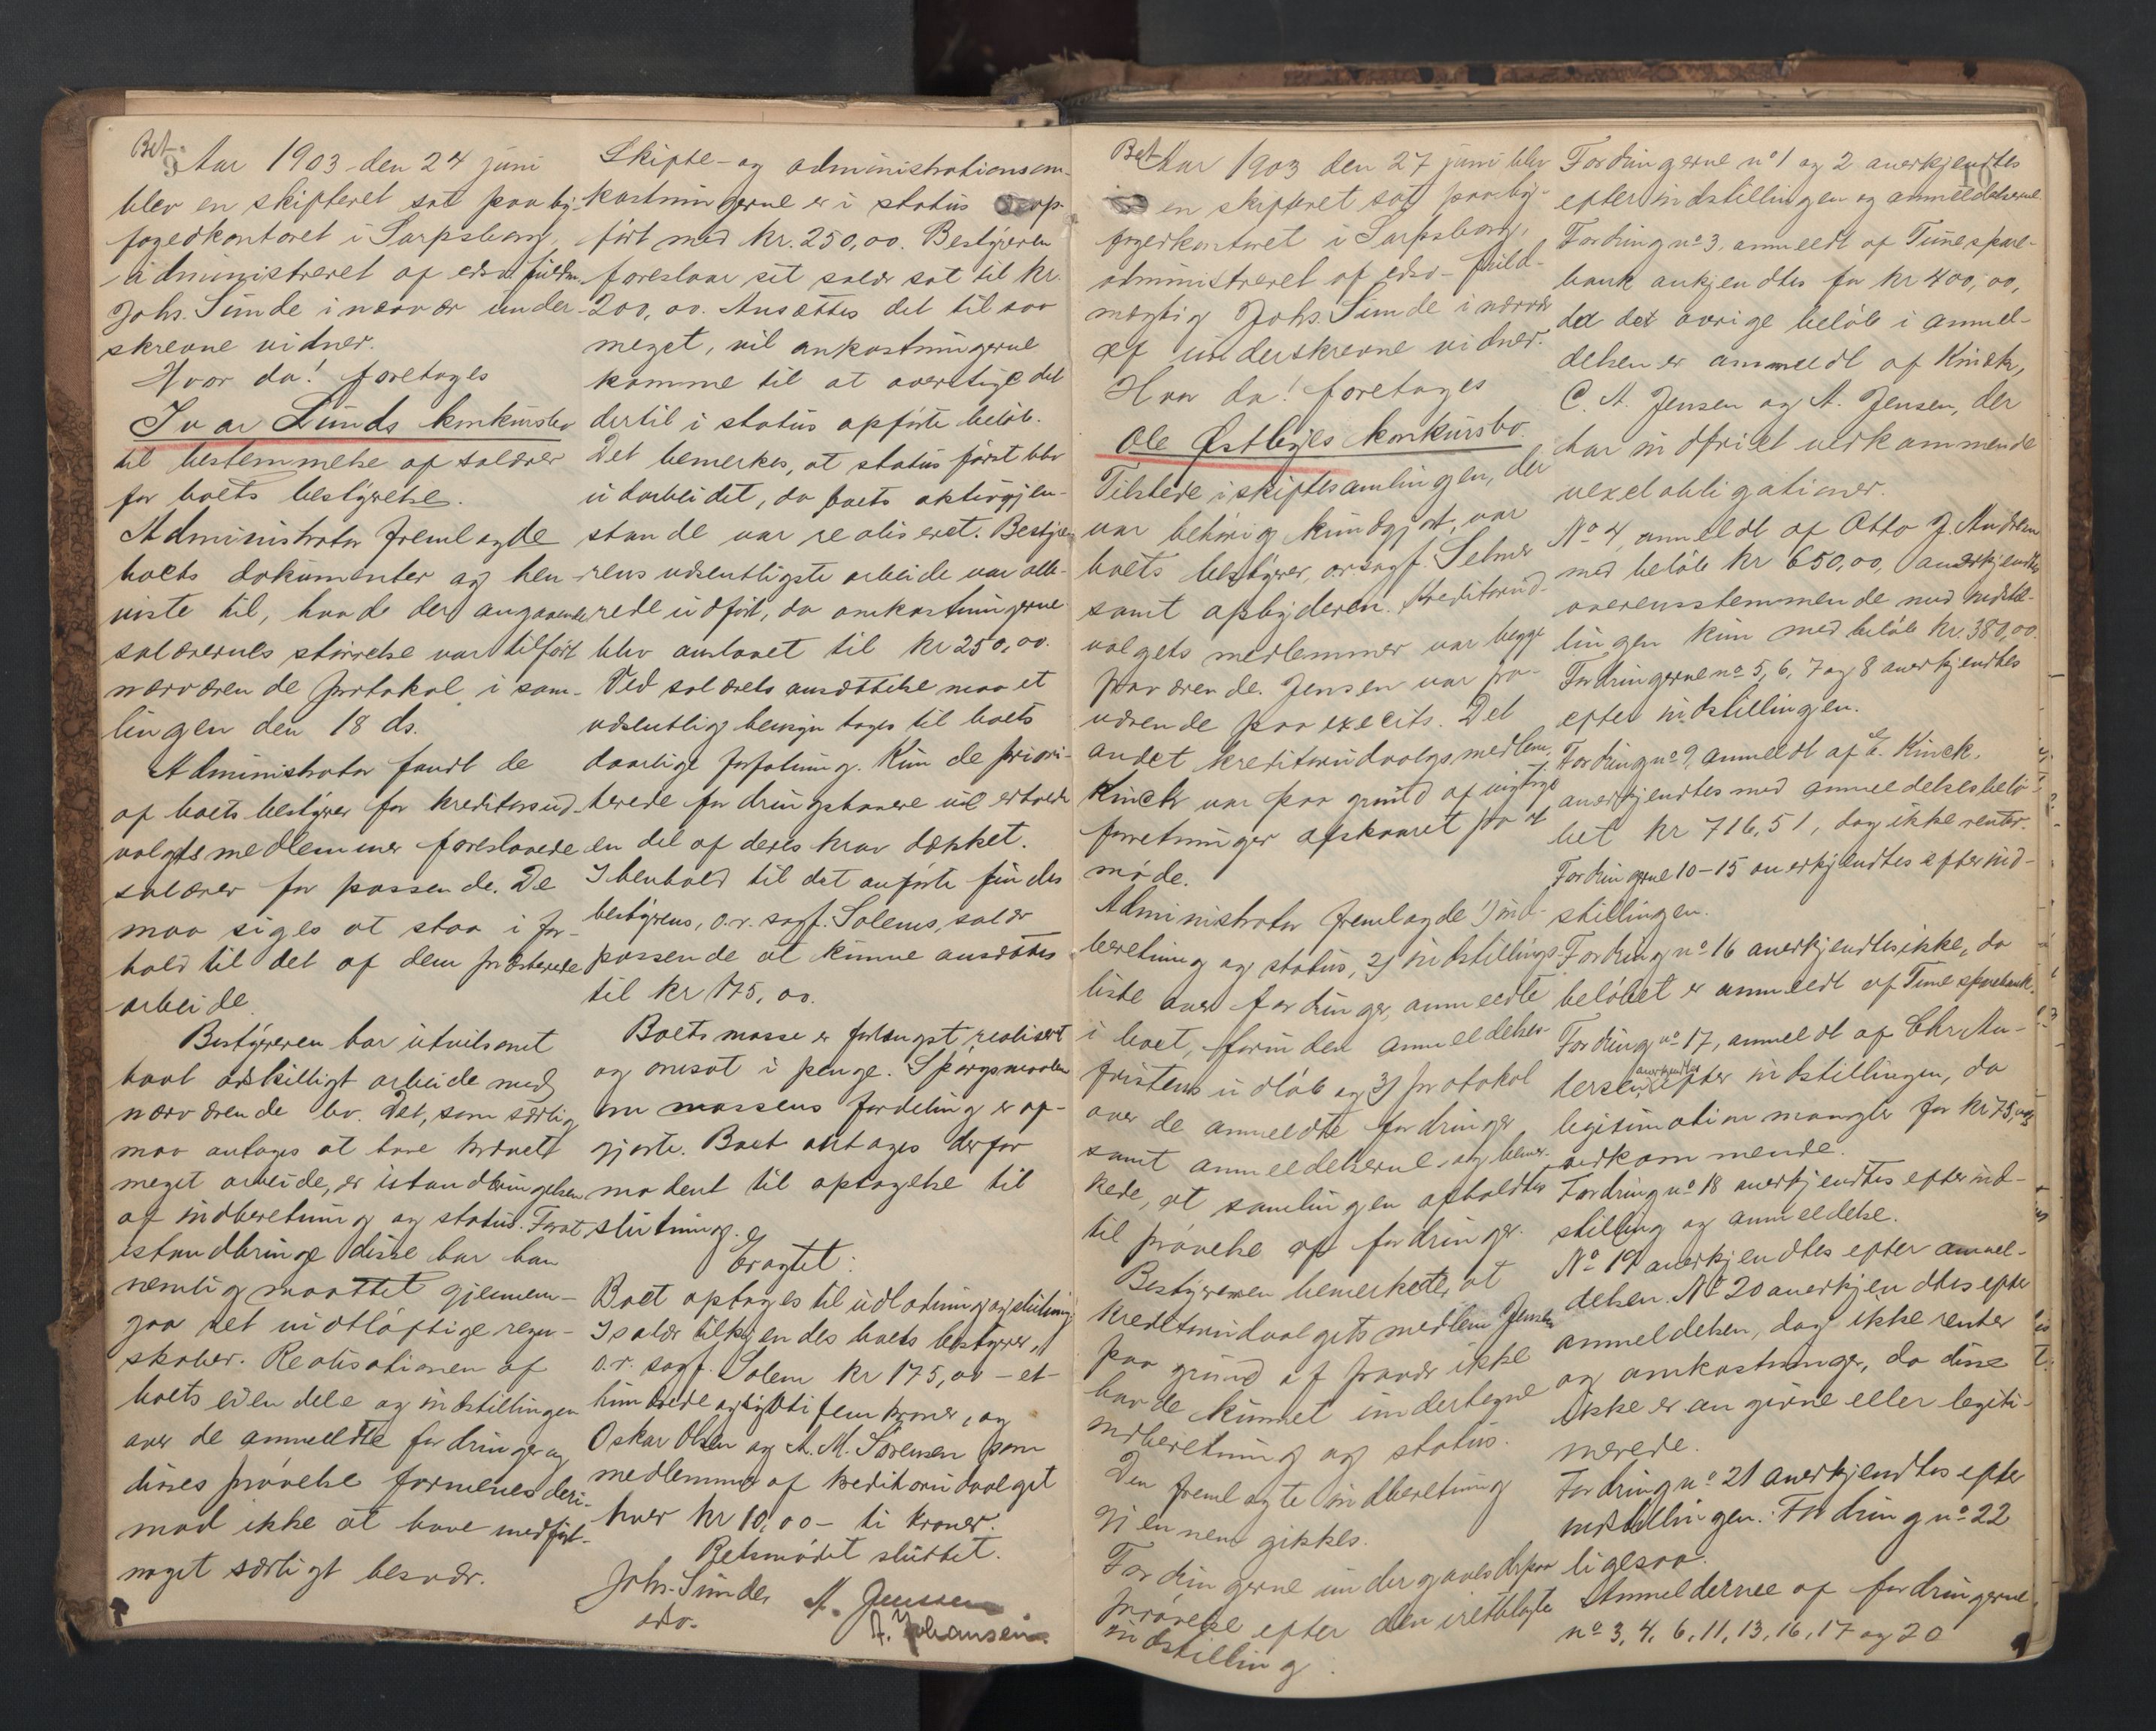 Bet.
9
Aar 1903 den 24 juni
blev en skifteret sat paa by-
fogedkontoret i Sarpsborg,
administreret af edsv. fuldm.
Johs. Sunde i nærvær under-
skrevne vidner.
Hvor da! foretoges
Ivar Lunds konkursbo
til bestemmelse af salærer
for boets bestyrelse.
Administrator fremlagde
boets dokumenter og hen-
viste til, hvad der angaaende
salærernes størrelse var tilført
nærværende protokol i sam-
lingen den 18 ds.
Administrator fandt de
af boets bestyrer for kreditorud-
valgets medlemmer foreslaaede
salærer for passende. De
maa siges at staa i for-
hold til det af dem præsterede
arbeide.
Bestyreren har utvilsomt
havt adskilligt arbeide med
nærværende bo. Det, som særlig
maa antages at have krævet
meget arbeide, er istandbringelsen
af indberetning og status. For at
istandbringe disse har han
nemlig maattet gjennem-
gaa et vidtløftige regn-
skaber. Realisationen af
boets eiendele og indstillingen
over de anmeldte fordringer og
disses prøvelse formenes deri-
mod ikke at have medført
noget særligt besvær.
Skifte- og administrationsom-
kostningerne er i status op-
ført med kr. 250,00. Bestyreren
foreslaar sit salær sat til kr.
200,00. Ansættes det til saa
meget, vil omkostningerne
komme til at overstige det
dertil i status opførte beløb.
Det bemerkes, at status først blev
udarbeidet, da boets aktivgjen-
stande var realiseret. Besty-
rerens væsentligste arbeide var alle-
rede udført, da omkostningerne
blev anslaaet til kr 250,00.
Ved salærets ansættelse maa et
væsentlig hensyn tages til boets
daarlige forfatning. Kun de priori-
terede fordringshavere vil erholde
en del af deres krav dækket.
I henhold til det anførte findes
bestyrerens, o.r. sagf. Solems, salær
passende at kunne ansættes
til kr 175,00.
Boets masse er forlængst realiseret
og omsat i penge. Spørgsmaalene
om massens fordeling er op-
gjorte. Boet antages derfor
modent til optagelse til
slutning.
Eragtet:
Boet optages til udlodning og slutning
I salær tilkjendes boets bestyrer,
o.r. sagf. Solem kr 175,00 - et-
hundrede og sytti fem kroner, og
Oskar Olsen og A. M. Sørensen som
medlemmer af kreditorudvalget
hver kr 10,00 - ti kroner.
Retsmødet sluttet.
Johs. Sunde, A. Jenssen
edsv. A. Johansen.
Bet.
Aar 1903 den 27 juni blev
en skifteret sat paa by-
fogedkontoret i Sarpsborg,
administreret af edsv. fuld-
mægtig Johs. Sunde i nærvær
af underskrevne vidner.
Hvor da! foretoges
Ole Østbyes konkursbo
Tilstede i skiftesamlingen, der
var behørig kundgjort, var
boets bestyrer, orsagf. Selmer
samt opbyderen. Kreditorud-
valgets medlemmer var begge
fraværende. Jensen var fra-
værende paa execits. Det
andet kreditorudvalgsmedlem,
Kinck var paa grund af vigtige
forretninger afskaaret fra at
møde.
Administrator fremlagde 1) ind-
beretning og status, 2) indstillings-
liste over fordringer, anmeldte
i boet, forinden anmeldelses-
fristens udløb og 3) protokol
over de anmeldte fordringer
samt anmeldelserne, og bemer-
kede, at samlingen afholdtes
til prøvelse af fordringer.
Bestyreren bemerkede, at
kreditorudvalgets medlem Jensen
paa grund af fravær ikke
havde kunnet undertegne
indberetning og status.
Den fremlagte indberetning
gjennemgikkes.
Fordringerne undergaves derpaa
prøvelse efter den iretlagte
indstilling:
10
Fordringerne no 1 og 2 anerkjendtes
efter indstillingen og anmeldelserne.
Fordring no 3, anmeldt af Tune spare-
bank ankjendtes for kr 400,00,
da det øvrige beløb i anmel-
delsen er anmeldt af Kinck,
C. A. Jensen og A. Jensen, der
har indfriet vedkommende
vexelobligationer.
No 4, anmeldt af Otto J. Andersen
med beløb kr 650,00, anerkjendtes
overensstemmende med indstil-
lingen kun med beløb kr. 380,00.
Fordringerne no 5, 6, 7 og 8 anerkjendtes
efter indstillingen.
Fordring no 9, anmeldt af C. Kinck,
anerkjendtes med anmeldelsesbelø-
bet kr 716,51, dog ikke renter.
Fordringerne 10-15 anerkjendtes efter ind-
stillingen.
Fordring no 16 anerkjendtes ikke, da
beløbet er anmeldt af Tune sparebank.
Fordring no 17, anmeldt af Chr. An-
dersen, anerkjendtes efter indstillingen, da
legitimation mangler for kr 75,
vedkommende.
Fordring no 18 anerkjendtes efter ind-
stilling og anmeldelse.
No 19 anerkjendtes efter anmel-
delsen. No 20 anerkjendtes efter
anmeldelsen, dog ikke renter
og omkostninger, da disse
ikke er angivne eller legiti-
merede.
Fordring no 21 anerkjendtes efter
indstillingen. Fordring no 22
ligesaa.
Anmelderne af fordringerne
no 3, 4, 6, 11, 13, 16, 17 og 20